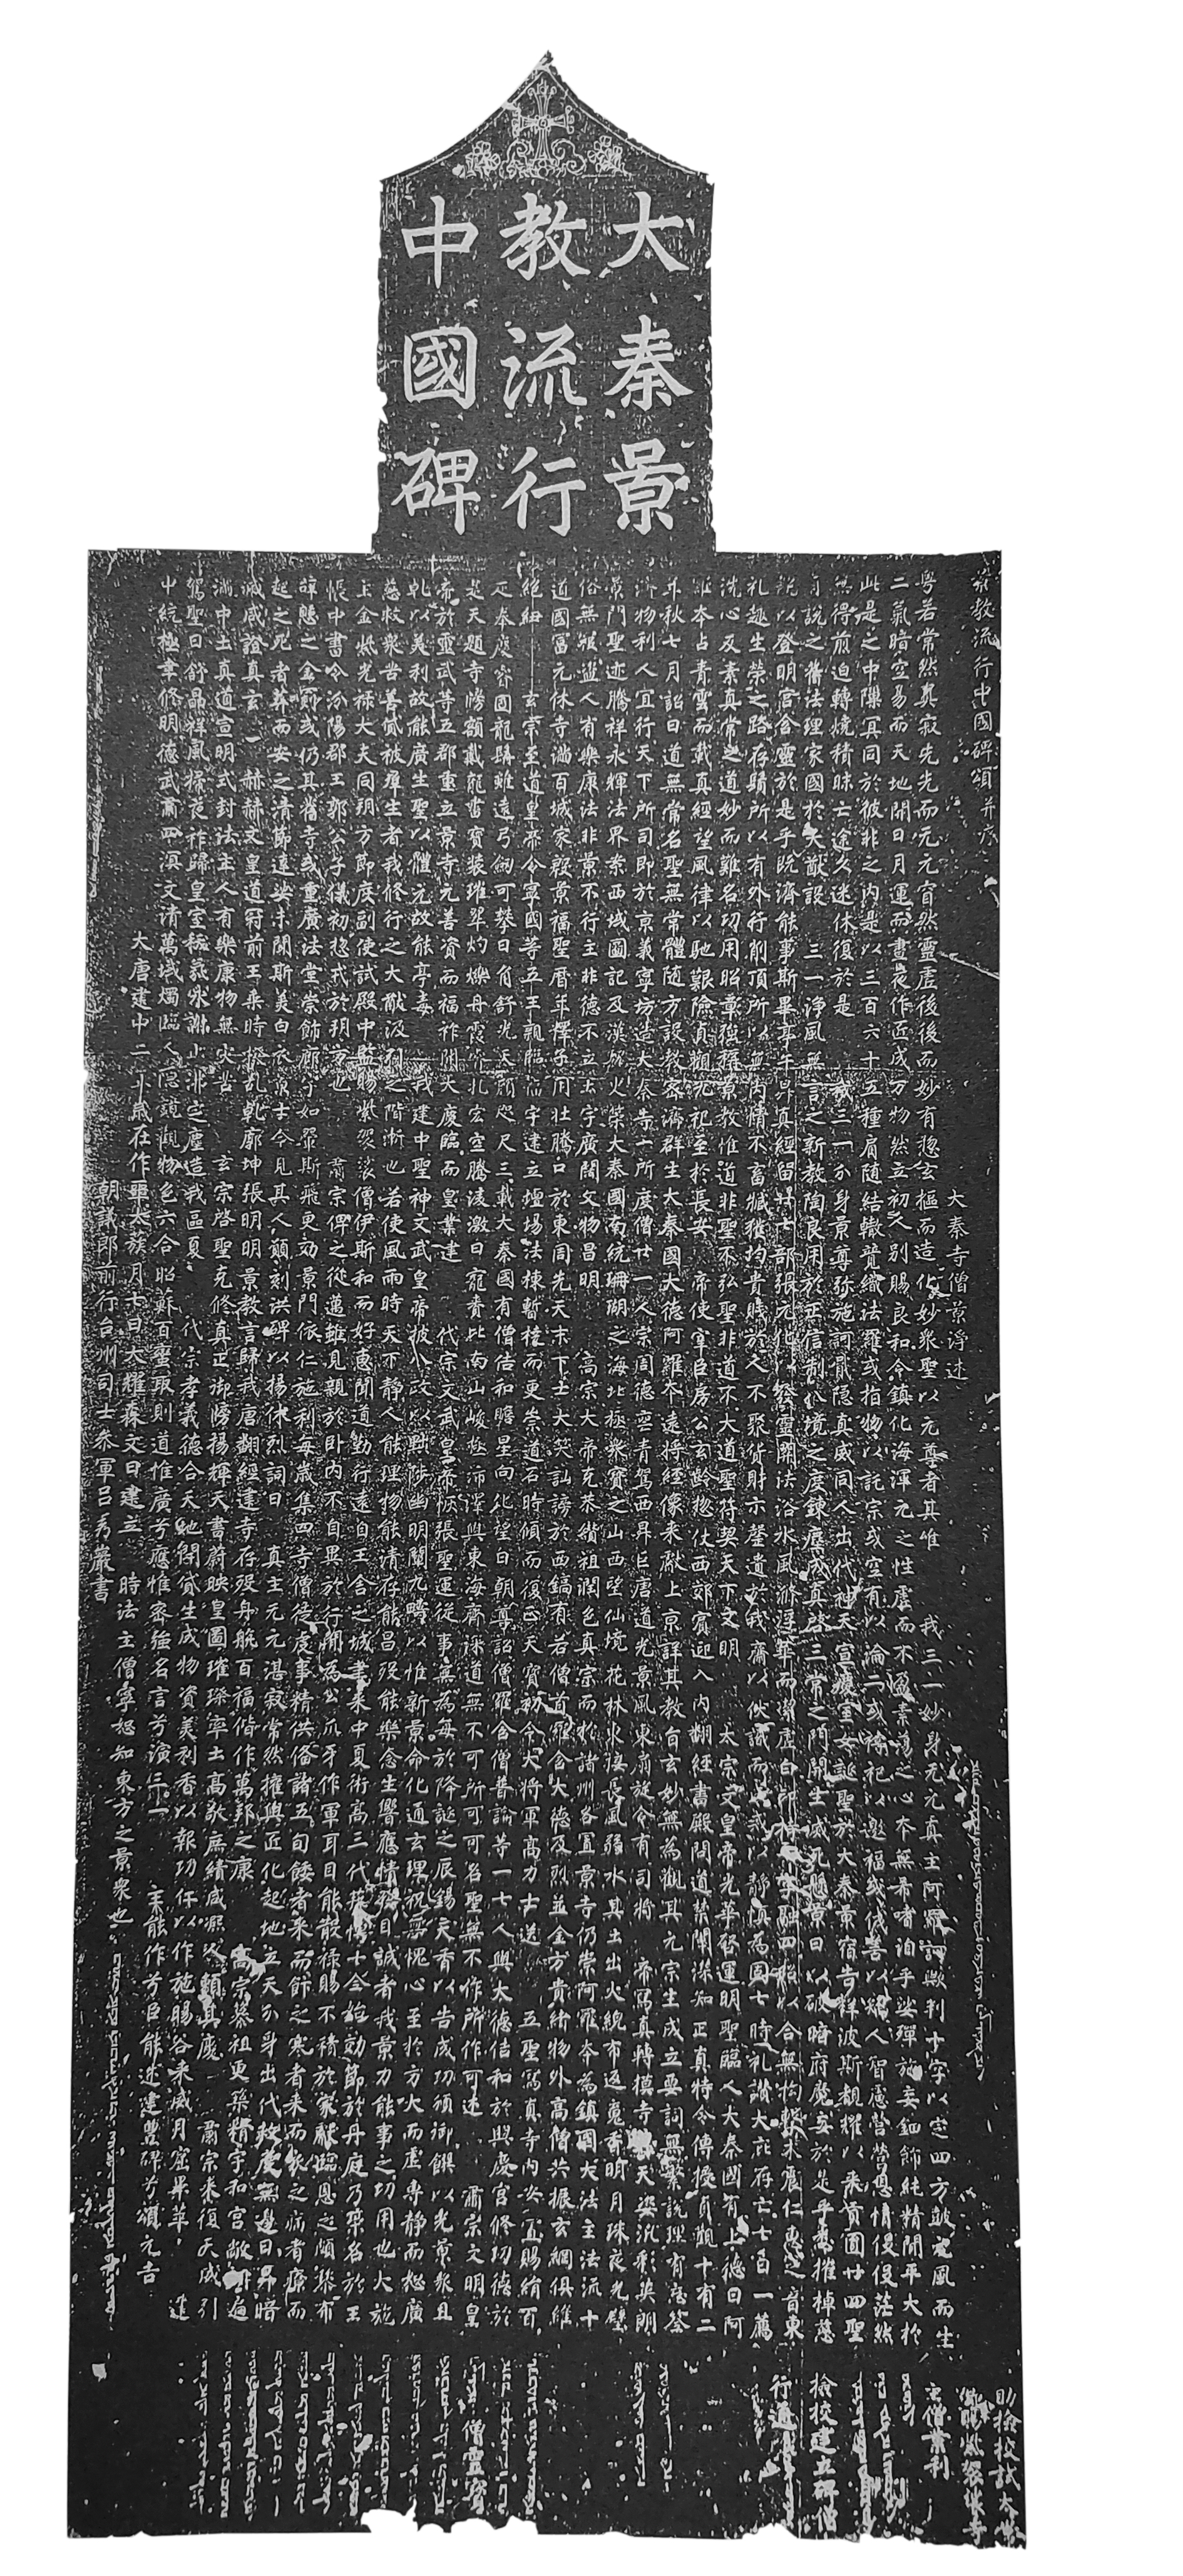 大秦景
教流行
中國碑
景教流行中國碑頌并序
大秦寺僧景淨述
粵若常然真寂先先而无元窅然靈虛後後而妙有惣玄樞而造化妙衆聖以元尊者其唯 我三一妙身无元真主阿羅訶歟判十字以定四方皷元風而生
二氣暗空易而天地開日月運而晝夜作匠成万物然立初人別賜良和令鎮化海渾元之性虛而不盈素蕩之心本無希嗜洎乎娑殫施妄鈿飾純精閒平大於
此是之中隟冥同於彼非之內是以三百六十五種肩隨結轍競織法羅或指物以託宗或空有以淪二或禱祀以邀福或伐善以矯人智慮營營恩情役役茫然
無得煎迫轉燒積昧亡途久迷休復於是 我三一分身景尊弥施訶戢隱真威同人出代神天宣慶室女誕聖於大秦景宿告祥波斯覩耀以來貢圓廿四聖
有說之舊法理家國於大猷設 三一淨風無言之新教陶良用於正信制八境之度鍊塵成真啓三常之門開生滅死懸景日以破暗府魔妄於是乎悉摧棹慈
航以登明宮含靈於是乎既濟能事斯畢亭午昇真經留廿七部張元化以發靈關法浴水風滌浮華而潔虛白印持十字融四照以合無拘擊木震仁惠之音東
礼趣生榮之路存鬚所以有外行削頂所以無內情不畜臧獲均貴賤於人不聚貨財示罄遺於我齋以伏識而成戒以靜慎為固七時礼讚大庇存亡七日一薦
洗心反素真常之道妙而難名功用昭彰強稱景教惟道非聖不弘聖非道不大道聖符契天下文明 太宗文皇帝光華啓運明聖臨人大秦國有上德曰阿
羅本占青雲而載真經望風律以馳艱險貞觀九祀至於長安 帝使宰臣房公玄齡惣仗西郊賓迎入內翻經書殿問道禁闈深知正真特令傳授貞觀十有二
年秋七月詔曰道無常名聖無常體隨方設教密濟群生大秦國大德阿羅本遠將經像來獻上京詳其教旨玄妙無為觀其元宗生成立要詞無繁說理有忘筌
濟物利人宜行天下所司即於京義寧坊造大秦寺一所度僧廿一人宗周德喪青駕西昇巨唐道光景風東扇旋令有司將 帝寫真轉摸寺壁天姿汎彩英朗
景門聖迹騰祥永輝法界案西域圖記及漢魏史策大秦國南統珊瑚之海北極衆寶之山西望仙境花林東接長風弱水其土出火綄布返魂香明月珠夜光璧
俗無寇盜人有樂康法非景不行主非德不立土宇廣闊文物昌明 高宗大帝克恭纘祖潤色真宗而於諸州各置景寺仍崇阿羅本為鎮國大法主法流十
道國富元休寺滿百城家殷景福聖曆年釋子用壯騰口於東周先天末下士大笑訕謗於西鎬有若僧首羅含大德及烈並金方貴緒物外高僧共振玄綱俱維
絕紐 玄宗至道皇帝令寧國等五王親臨福宇建立壇場法棟暫橈而更崇道石時傾而復正天寶初令大將軍高力士送 五聖寫真寺內安置賜絹百
疋奉慶睿圖龍髯雖遠弓劍可攀日角舒光天顏咫尺三載大秦國有僧佶和瞻星向化望日朝尊詔僧羅含僧普論等一七人與大德佶和於興慶宮修功德於
是天題寺牓額戴龍書寶裝璀翠灼爍丹霞睿扎宏空騰淩激日寵賚比南山峻極沛澤與東海齊深道無不可所可可名聖無不作所作可述 肅宗文明皇
帝於靈武等五郡重立景寺元善資而福祚開大慶臨而皇業建 代宗文武皇帝恢張聖運從事無為每於降誕之辰錫天香以告成功頒御饌以光景衆且
乹以美利故能廣生聖以體元故能亭毒 我建中聖神文武皇帝披八政以黜陟幽明闡九疇以惟新景命化通玄理祝無愧心至於方大而虛專靜而恕廣
慈救衆苦善貸被群生者我修行之大猷汲引之階漸也若使風雨時天下靜人能理物能清存能昌歿能樂念生響應情發目誠者我景力能事之功用也大施
主金紫光祿大夫同朔方節度副使試殿中監賜紫袈裟僧伊斯和而好惠聞道勤行遠自王舍之城聿來中夏術高三代藝博十全始効節於丹庭乃策名於王
帳中書令汾陽郡王郭公子儀初惣戎於朔方也 肅宗俾之從邁雖見親於臥內不自異於行間為公爪牙作軍耳目能散祿賜不積於家獻臨恩之頗黎布
辭憩之金罽或仍其舊寺或重廣法堂崇飾廊宇如翬斯飛更効景門依仁施利每歲集四寺僧徒虔事精供備諸五旬餧者來而飰之寒者來而衣之病者療而
起之死者葬而安之清節達娑未聞斯美白衣景士今見其人願刻洪碑以揚休烈詞曰 真主无元湛寂常然權輿匠化起地立天分身出代救度無邊日昇暗
滅咸證真玄 赫赫文皇道冠前王乘時撥亂乹廓坤張明明景教言歸我唐翻經建寺存歿舟航百福偕作萬邦之康 高宗纂祖更築精宇和宮敞朗遍
滿中土真道宣明式封法主人有樂康物無災苦 玄宗啓聖克修真正御牓揚輝天書蔚映皇圖璀璨率土高敬庶績咸熙人賴其慶 肅宗來復天威引
駕聖日舒晶祥風掃夜祚歸皇室祅氛永謝止沸定塵造我區夏 代宗孝義德合天地開貸生成物資美利香以報功仁以作施暘谷來威月窟畢萃 建
中統極聿修明德武肅四溟文清萬域燭臨人隱鏡觀物色六合昭蘇百蠻取則道惟廣兮應惟密強名言兮演三一 主能作兮臣能述建豐碑兮頌元吉
大唐建中二年歲在作噩太蔟月七日大耀森文日建立 時法主僧寧恕知東方之景衆也
朝議郎前行台州司士參軍呂秀巖書
助檢挍試太常
卿賜紫袈裟寺
主僧業利
檢挍建立碑僧
行通
僧靈寶